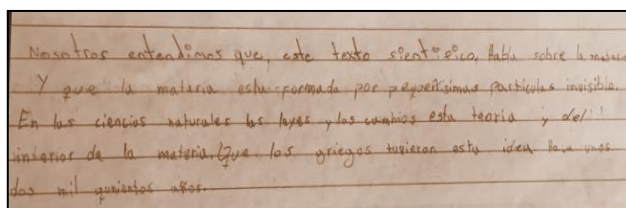 Nosotros entendimos que, este texto sientifico, Habla sobre la materia
Y que la materia esta formada por pequeñisimas particulas invisible.
En las ciencias naturales las leyes y los cambios esta teoria y del
interior de la materia. Que los griegos tuvieron esta idea. Hace unos
dos mil qunientos años.